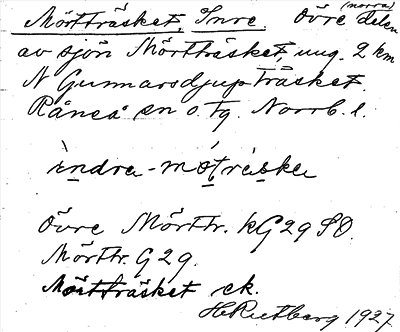 Mörtträsket, Inre. Övre (norra) delen
av sjön Mörtträsket, ung. 2 km
N Gunnarsdjupträsket.
Råneå sn o. tg. Norrb. l.
ìndra-mó̀tʀèske
Övre Mörttr. kG29 SO.
Mörttr. G29.
Mörtträsket ek.
H Ruthberg 1927